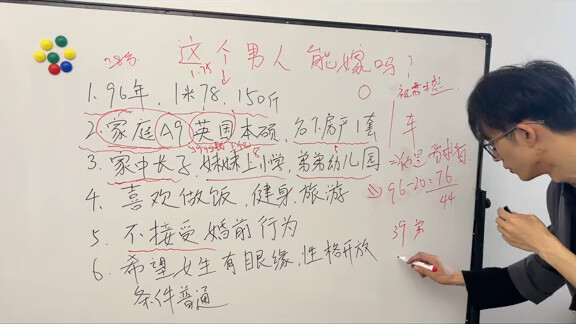 这个男人能嫁吗?
28岁
1.78
1.96年,1米78,150斤
2.家庭A9英国本硕,名下房产1套
3.家中长子,妹妹上小学,弟弟幼儿园
4.喜欢做饭,健身,旅游
5.不接受婚前行为
6.希望女生有眼缘,性格开放
条件普通
车
96-20=76
44
39岁